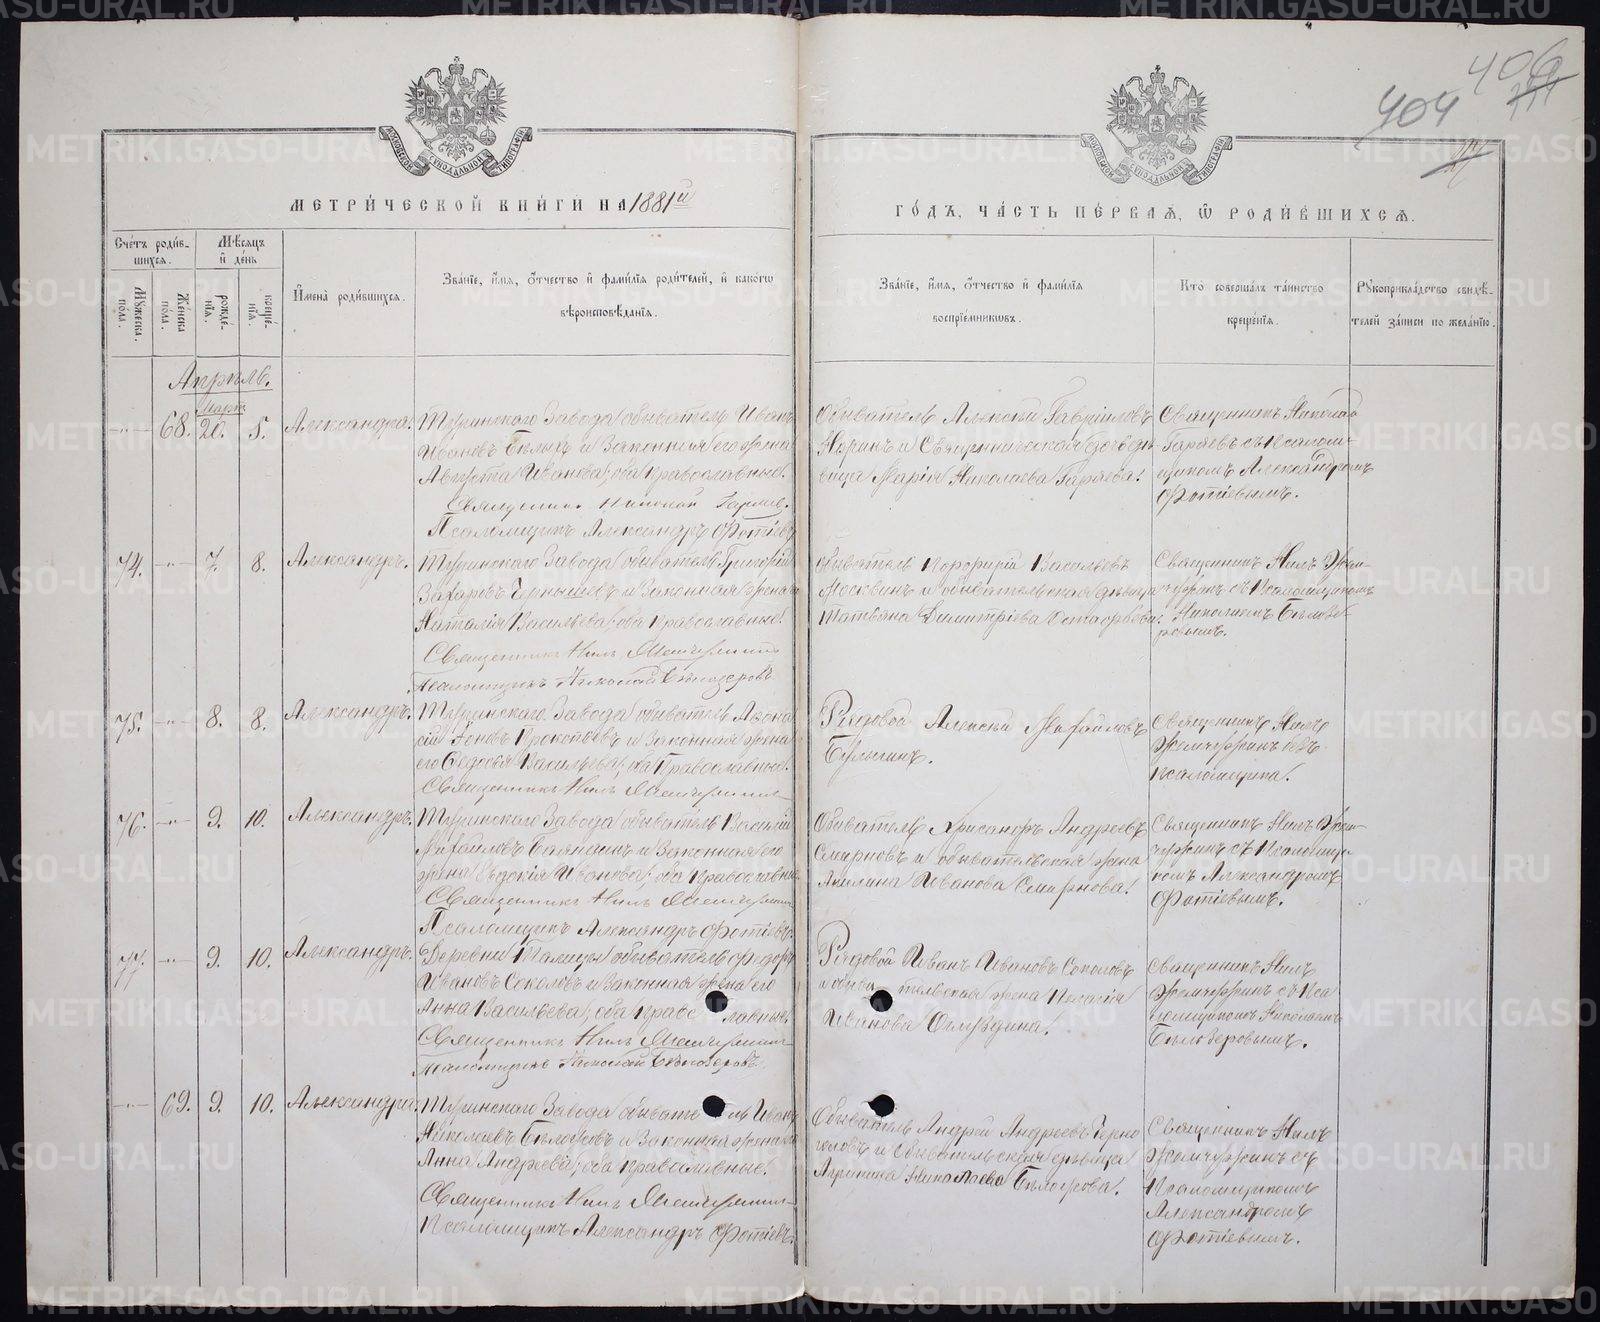 406
404
МЕТРИ́ЧЕСКОЙ КНИ́ГИ НА 1881й
ГО́ДЪ, ЧА́СТЬ ПЕ́РВАѦ, Ѡ҆ РОДИ́ВШИХСѦ.
Сче́тъ роди́в-
шихсѧ.
Мꙋ́жеска по́ла.
Же́нска по́ла.
Мѣ́сѧцъ и҆ де́нь
рожде́-нїѧ.
креще́-нїѧ.
И҆мена̀ роди́вшихсѧ.
Зва́нїе, и҆́мѧ, ѻ҆́тчество и҆ фамѝлїѧ роди́телей, и҆ како́гѡ
вѣроисповѣ́данїѧ.
Зва́нїе, и҆́мѧ, ѻ҆́тчество и҆ фами́лїѧ
воспрїе́мникѡвъ.
Кто̀ соверша́лъ та́инство
креще́нїѧ.
Рꙋкоприкла́дство свидѣ́-
телей за́писи по жела́нїю.
Апрѣль.
Мартъ
68. 20. 5. Александра.
Туринского Завода обыватель Иванъ
Ивановъ Бѣлыхъ и Законная его жена
Августа Иванова; оба Православные.
Священникъ Николай Гаряевъ.
Псаломщикъ Александръ Фотіевъ
Обыватель Алексѣй Гавриловъ
и Священническая дочь дѣ-
вица Марія Николаева Гаряева.
Священникъ Николай
Гаряевъ съ Псалом-
щикомъ Александромъ
Фотіевымъ.
74. 7. 8. Александръ.
Туринского Завода обыватель Григорій
Захаровъ Чернышевъ и Законная жена
Наталія Васильева; оба Православные.
Священникъ Нилъ Жемчужинъ
Псаломщикъ Николай Бѣлозеровъ
Обыватель Порфирій Васильевъ
Москвинъ и обывательская дѣвица
Татьяна Димитріева
Священникъ Нилъ Жем-
чужинъ съ Псаломщикомъ
Николаемъ Бѣлозе-
ровымъ.
75. 8. 8. Александръ.
Туринского Завода обыватель Афана
сій Іоновъ Прокопьевъ и Законная жена
его Ѳедосья Васильева; оба Православные.
Священникъ Нилъ Жемчужинъ
Рядовой Алексѣй Михайловъ
Булыгинъ.
Священникъ Нилъ
Жемчужинъ безъ
Псаломщика.
76. 9. 10. Александръ.
Туринского Завода обыватель Василій
Михайловъ и Законная его
жена Евдокія Иванова; оба Православные
Священникъ Нилъ Жемчужинъ
Псаломщикъ Александръ Фотіевъ.
Обыватель Хрисанфъ Андреевъ
Смирновъ и обывательская жена
Иванова Смирнова.
Священникъ Нилъ Жем-
чужинъ съ Псаломщи-
комъ Александромъ
Фотіевымъ.
77. 9. 10. Александръ.
Деревни Талицы обыватель Федоръ
Ивановъ Соколовъ и Законная жена его
Анна Васильева; оба Православные.
Священникъ Нилъ Жемчужинъ
Псаломщикъ Николай Бѣлозеровъ.
Рядовой Иванъ Ивановъ Соколовъ
и обывательская жена Пелагія
Иванова
Священникъ Нилъ
Жемчужинъ съ Пса
ломщикомъ Николаемъ
Бѣлозеровымъ.
69. 9. 10. Александра.
Туринского Завода обыватель Иванъ
Николаевъ и Законная жена
Анна Андреева; оба Православные.
Священникъ Нилъ Жемчужинъ
Псаломщикъ Александръ Фотіевъ.
Обыватель Андрей Андреевъ
и Обывательская дѣвица
Агрипина Николаева
Священникъ Нилъ
Жемчужинъ съ
Псаломщикомъ
Александромъ
Фотіевымъ.
METRIKI.GASO-URAL.RU